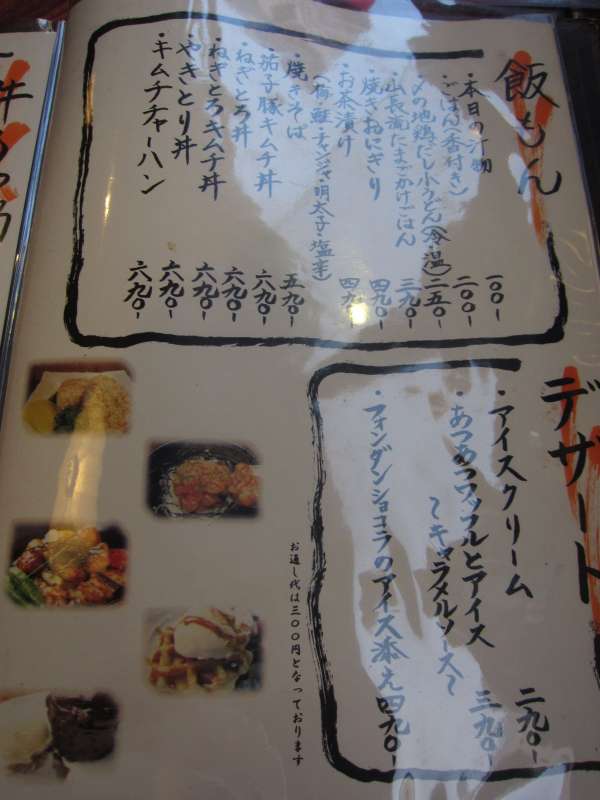 飯もん
・本日の汁物 一〇〇-
・ごはん(香付き) 二〇〇-
・〆の地鶏だし小うどん(冷・温) 二五〇-
・山長流たまごかけごはん 三九〇-
・焼きおにぎり 四九〇-
・お茶漬け 四九〇-
(梅・鮭・チャンジャ・明太子・塩辛)
・焼きそば 五九〇-
・茄子豚キムチ丼 六九〇-
・ねぎとろ丼 六九〇-
・ねぎとろキムチ丼 六九〇-
・やきとり丼 六九〇-
・キムチチャーハン 六九〇-
デザート
・アイスクリーム 二九〇-
・あつあつワッフルとアイス 三九〇-
〜キャラメルソース〜
・フォンダンショコラのアイス添え 四九〇-
お通し代は三〇〇円となっております